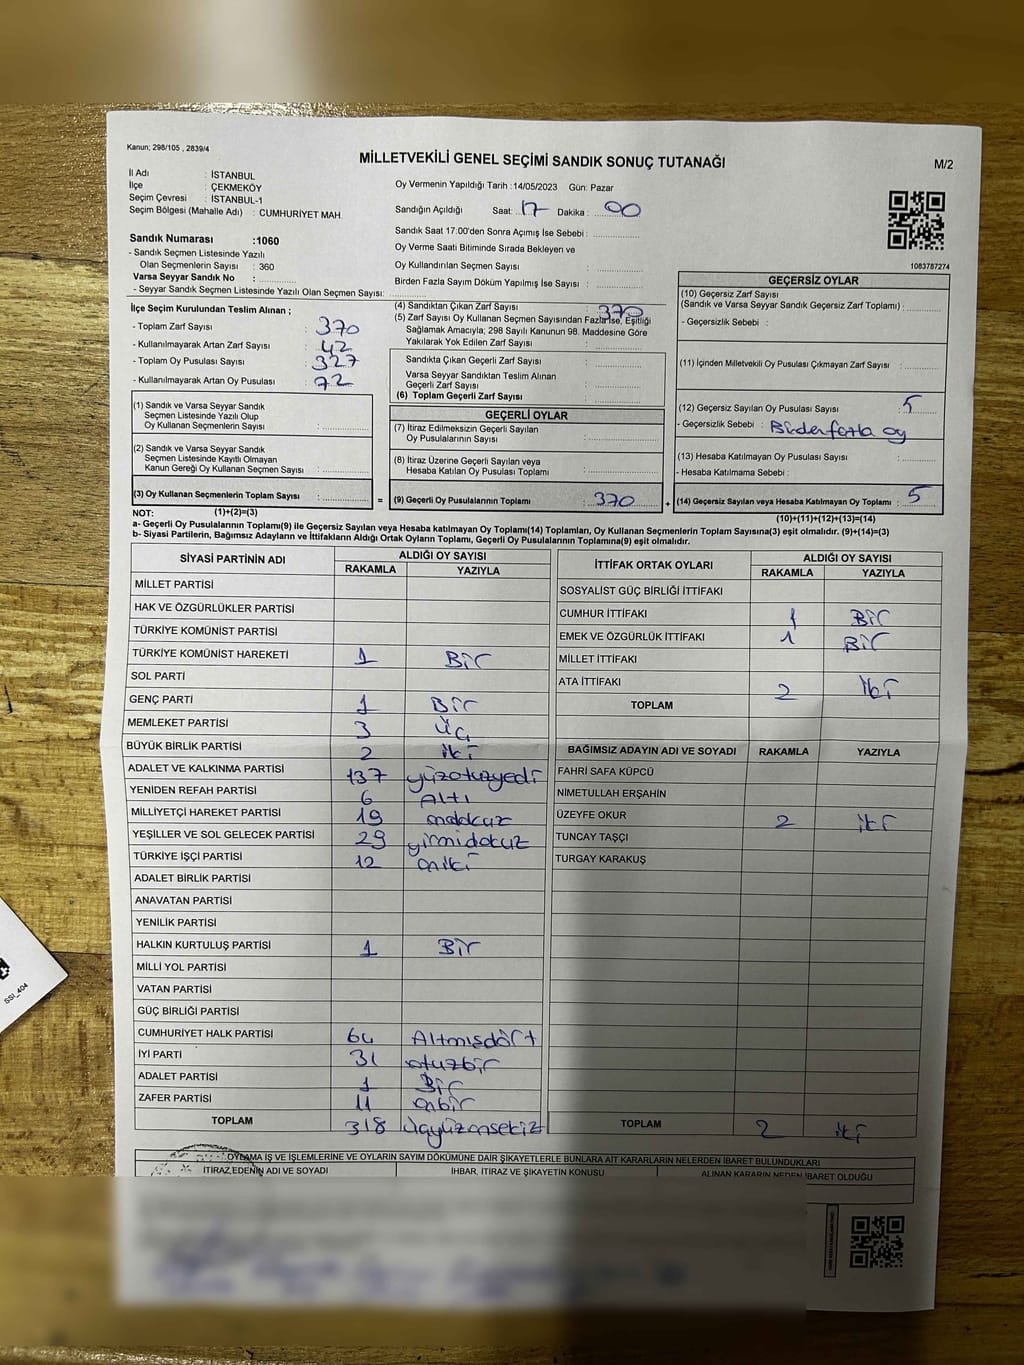 Kanun; 298/105 , 2839/4
MİLLETVEKİLİ GENEL SEÇİMİ SANDIK SONUÇ TUTANAĞI
M/2
İl Adı : İSTANBUL
İlçe : ÇEKMEKÖY
Seçim Çevresi : İSTANBUL-1
Seçim Bölgesi (Mahalle Adı) : CUMHURİYET MAH.
Oy Vermenin Yapıldığı Tarih :14/05/2023 Gün: Pazar
Sandığın Açıldığı Saat: 17 Dakika : 00
Sandık Saat 17:00'den Sonra Açımış İse Sebebi :
Oy Verme Saati Bitiminde Sırada Bekleyen ve
Oy Kullandırılan Seçmen Sayısı :
Birden Fazla Sayım Döküm Yapılmış İse Sayısı :
1083787274
Sandık Numarası :1060
- Sandık Seçmen Listesinde Yazılı
Olan Seçmenlerin Sayısı : 360
Varsa Seyyar Sandık No :
- Seyyar Sandık Seçmen Listesinde Yazılı Olan Seçmen Sayısı:
İlçe Seçim Kurulundan Teslim Alınan ;
- Toplam Zarf Sayısı : 370
- Kullanılmayarak Artan Zarf Sayısı : 42
- Toplam Oy Pusulası Sayısı : 327
- Kullanılmayarak Artan Oy Pusulası : 72
(1) Sandık ve Varsa Seyyar Sandık
Seçmen Listesinde Yazılı Olup
Oy Kullanan Seçmenlerin Sayısı :
(2) Sandık ve Varsa Seyyar Sandık
Seçmen Listesinde Kayıtlı Olmayan
Kanun Gereği Oy Kullanan Seçmen Sayısı :
(3) Oy Kullanan Seçmenlerin Toplam Sayısı : =
(4) Sandıktan Çıkan Zarf Sayısı : 370
(5) Zarf Sayısı Oy Kullanan Seçmen Sayısından Fazla İse, Eşitliği
Sağlamak Amacıyla; 298 Sayılı Kanunun 98. Maddesine Göre
Yakılarak Yok Edilen Zarf Sayısı :
Sandıkta Çıkan Geçerli Zarf Sayısı :
Varsa Seyyar Sandıktan Teslim Alınan
Geçerli Zarf Sayısı :
(6) Toplam Geçerli Zarf Sayısı :
GEÇERLİ OYLAR
(7) İtiraz Edilmeksizin Geçerli Sayılan
Oy Pusulalarının Sayısı :
(8) İtiraz Üzerine Geçerli Sayılan veya
Hesaba Katılan Oy Pusulası Toplamı :
(9) Geçerli Oy Pusulalarının Toplamı : 370 +
GEÇERSİZ OYLAR
(10) Geçersiz Zarf Sayısı
(Sandık ve Varsa Seyyar Sandık Geçersiz Zarf Toplamı) :
- Geçersizlik Sebebi :
(11) İçinden Milletvekili Oy Pusulası Çıkmayan Zarf Sayısı :
(12) Geçersiz Sayılan Oy Pusulası Sayısı : 5
- Geçersizlik Sebebi : Birden fazla oy
(13) Hesaba Katılmayan Oy Pusulası Sayısı :
- Hesaba Katılmama Sebebi :
(14) Geçersiz Sayılan veya Hesaba Katılmayan Oy Toplamı : 5
NOT: (1)+(2)=(3)
(10)+(11)+(12)+(13)=(14)
a- Geçerli Oy Pusulalarının Toplamı(9) ile Geçersiz Sayılan veya Hesaba katılmayan Oy Toplamı(14) Toplamları, Oy Kullanan Seçmenlerin Toplam Sayısına(3) eşit olmalıdır. (9)+(14)=(3)
b- Siyasi Partilerin, Bağımsız Adayların ve İttifakların Aldığı Ortak Oyların Toplamı, Geçerli Oy Pusulalarının Toplamına(9) eşit olmalıdır.
SİYASİ PARTİNİN ADI ALDIĞI OY SAYISI
RAKAMLA YAZIYLA
MİLLET PARTİSİ
HAK VE ÖZGÜRLÜKLER PARTİSİ
TÜRKİYE KOMÜNİST PARTİSİ
TÜRKİYE KOMÜNİST HAREKETİ 1 Bir
SOL PARTİ
GENÇ PARTİ 1 Bir
MEMLEKET PARTİSİ 3 Üç
BÜYÜK BİRLİK PARTİSİ 2 iki
ADALET VE KALKINMA PARTİSİ 137 yüzotuzyedi
YENİDEN REFAH PARTİSİ 6 Altı
MİLLİYETÇİ HAREKET PARTİSİ 19 ondokuz
YEŞİLLER VE SOL GELECEK PARTİSİ 29 yirmidokuz
TÜRKİYE İŞÇİ PARTİSİ 12 oniki
ADALET BİRLİK PARTİSİ
ANAVATAN PARTİSİ
YENİLİK PARTİSİ
HALKIN KURTULUŞ PARTİSİ 1 Bir
MİLLİ YOL PARTİSİ
VATAN PARTİSİ
GÜÇ BİRLİĞİ PARTİSİ
CUMHURİYET HALK PARTİSİ 64 Altmışdört
İYİ PARTİ 31 otuzbir
ADALET PARTİSİ 1 Bir
ZAFER PARTİSİ 11 onbir
TOPLAM 318 üçyüzonsekiz
İTTİFAK ORTAK OYLARI ALDIĞI OY SAYISI
RAKAMLA YAZIYLA
SOSYALİST GÜÇ BİRLİĞİ İTTİFAKI
CUMHUR İTTİFAKI 1 Bir
EMEK VE ÖZGÜRLÜK İTTİFAKI 1 Bir
MİLLET İTTİFAKI
ATA İTTİFAKI
TOPLAM 2 İki
BAĞIMSIZ ADAYIN ADI VE SOYADI RAKAMLA YAZIYLA
FAHRİ SAFA KÜPCÜ
NİMETULLAH ERŞAHİN
ÜZEYFE OKUR 2 iki
TUNCAY TAŞÇI
TURGAY KARAKUŞ
TOPLAM 2 iki
OYLAMA İŞ VE İŞLEMLERİNE VE OYLARIN SAYIM DÖKÜMÜNE DAİR ŞİKAYETLERLE BUNLARA AİT KARARLARIN NELERDEN İBARET BULUNDUKLARI
İTİRAZ EDENİN ADI VE SOYADI İHBAR, İTİRAZ VE ŞİKAYETİN KONUSU ALINAN KARARIN NEDEN İBARET OLDUĞU
SSI_404